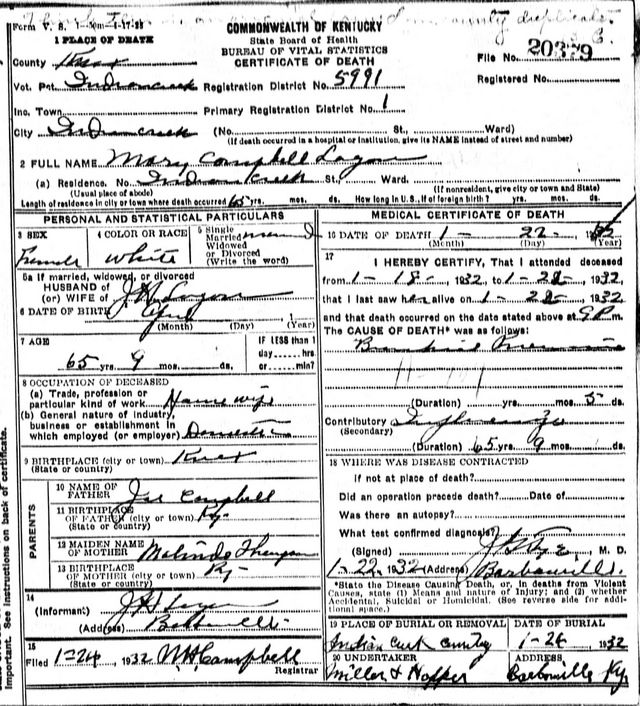 Form V. S. 1-50m-1-17-28
COMMONWEALTH OF KENTUCKY
State Board of Health
BUREAU OF VITAL STATISTICS
CERTIFICATE OF DEATH
1 PLACE OF DEATH
County Knox
File No. 20379
Vot. Pct. Indian Creek Registration District No. 5991
Registered No.
Inc. Town Primary Registration District No. 1
City Indian Creek (No. St., Ward)
(If death occurred in a hospital or institution, give its NAME instead of street and number)
2 FULL NAME Mary Campbell Logan
(a) Residence. No. Indian Creek St., Ward.
(Usual place of abode) (If nonresident, give city or town and State)
Length of residence in city or town where death occurred 65 yrs. mos. ds. How long in U. S., if of foreign birth? yrs. mos. ds.
PERSONAL AND STATISTICAL PARTICULARS
3 SEX Female
4 COLOR OR RACE White
5 Single Married Widowed or Divorced (Write the word) married
5a If married, widowed, or divorced
HUSBAND OF
(or) WIFE of J H Logan
6 DATE OF BIRTH April 1
(Month) (Day) (Year)
7 AGE
65 yrs. 9 mos. ds.
IF LESS than 1 day......hrs. or......min?
8 OCCUPATION OF DECEASED
(a) Trade, profession or particular kind of work House wife
(b) General nature of industry, business or establishment in which employed (or employer) Domestic
9 BIRTHPLACE (city or town) Knox
(State or country)
PARENTS
10 NAME OF FATHER Campbell
11 BIRTHPLACE OF FATHER (city or town) Ky
(State or country)
12 MAIDEN NAME OF MOTHER Malinda
13 BIRTHPLACE OF MOTHER (city or town) Ky
(State or country)
14
(Informant) J H Logan
(Address)
15
Filed 1-24, 1932 M H Campbell
Registrar
MEDICAL CERTIFICATE OF DEATH
16 DATE OF DEATH 1- 22- 1932
(Month) (Day) (Year)
17
I HEREBY CERTIFY, That I attended deceased
from 1-18-, 1932, to 1-22-, 1932,
that I last saw her alive on 1-22-, 1932
and that death occurred on the date stated above at 9 P m.
The CAUSE OF DEATH* was as follows:
Bronchial Pneumonia
(Duration) yrs. mos. 5 ds.
Contributory Influenza
(Secondary)
(Duration) 65 yrs. 9 mos. ds.
18 WHERE WAS DISEASE CONTRACTED
If not at place of death?
Did an operation precede death? Date of
Was there an autopsy?
What test confirmed diagnosis?
(Signed) M. D.
1-22, 1932 (Address) Barbourville.
*State the Disease Causing Death, or, in deaths from Violent
Causes, state (1) Means and nature of Injury; and (2) whether
Accidental, Suicidal or Homicidal. (See reverse side for additional space.)
19 PLACE OF BURIAL OR REMOVAL DATE OF BURIAL
Indian Creek 1-24 1932
20 UNDERTAKER ADDRESS
Miller & Hopper Barbourville Ky
Important. See instructions on back of certificate.